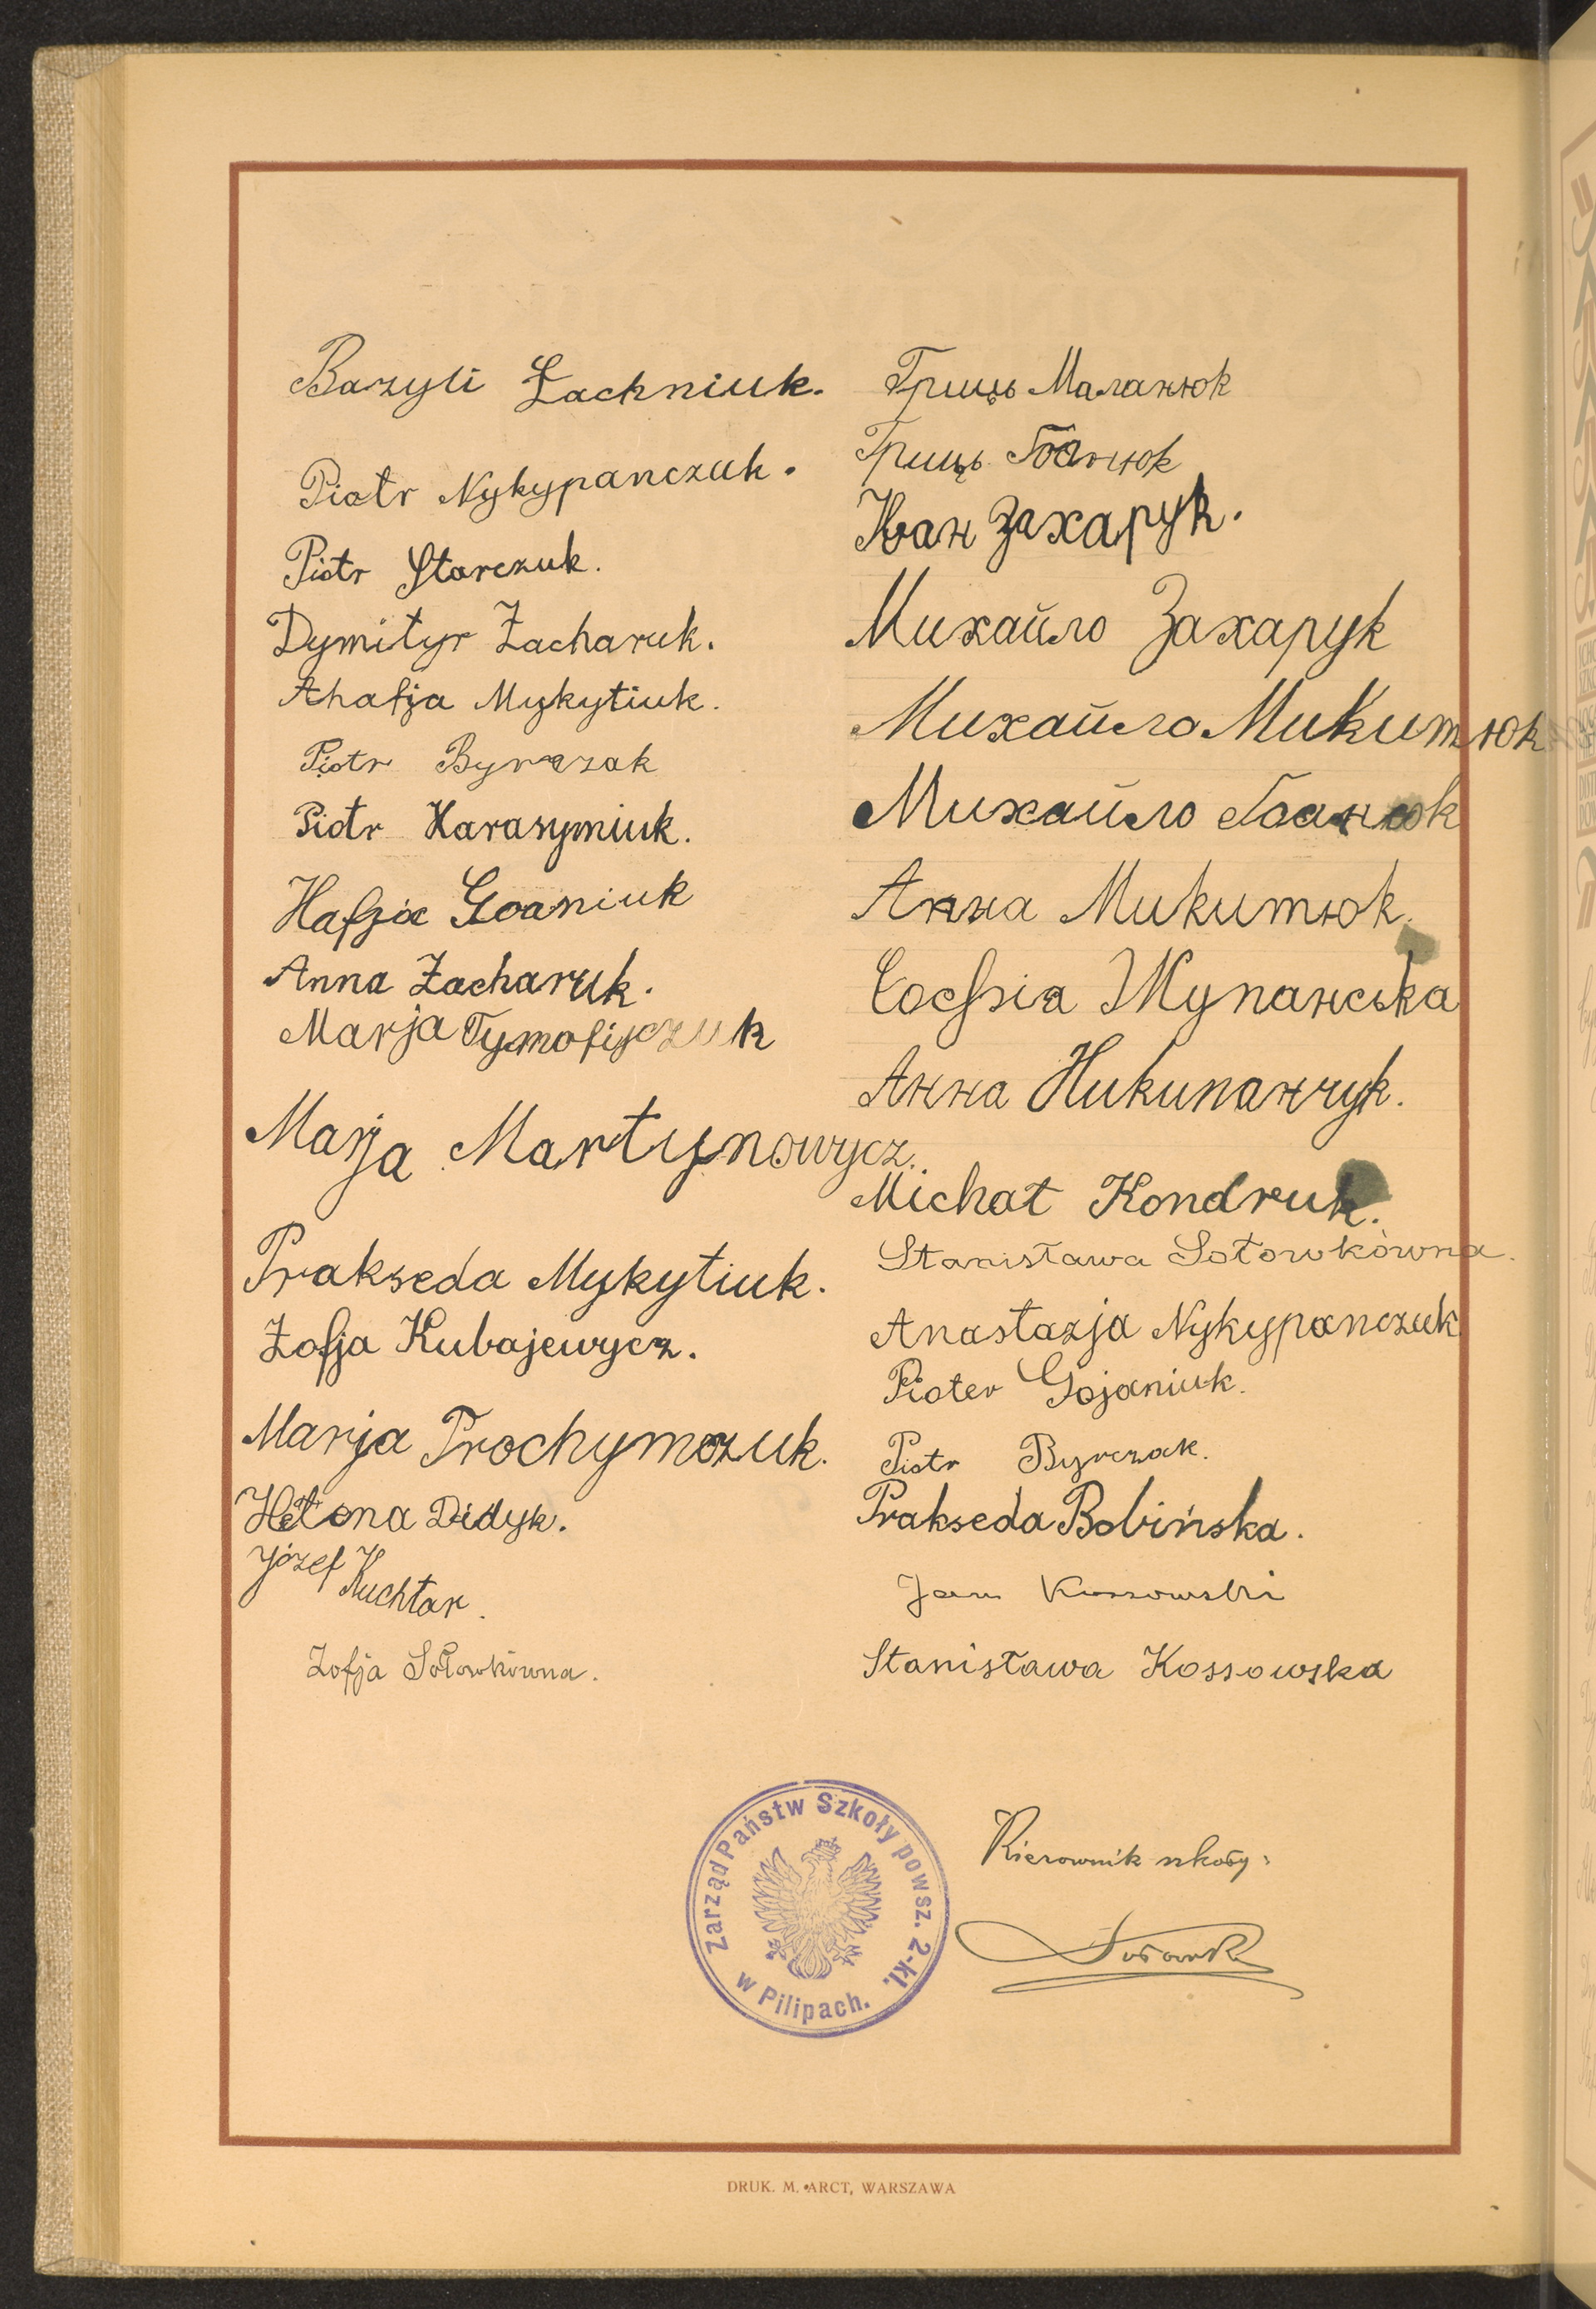 Bazyli Łachniuk.
Piotr Nykypanczuk.
Piotr Starczuk.
Dymityr Zacharuk.
Ahafja Mykytiuk.
Piotr Byrczak
Piotr Harasymiuk.
Hafja Goaniuk
Anna Zacharuk.
Marja Tymofijczuk
Marja Martynowycz.
Prakseda Mykytiuk.
Zofja Kubajewycz.
Marja Prochymczuk.
Helena Didyk.
Józef Kuchtar.
Zofja Sołowkówna.
Гриць Маланюк
Гриць
Іван Захарук.
Михайло Захарук
Михайло Микитюк
Михайло
Анна Микитюк.
Софія Жупанська
Анна Никипанчук.
Michał Kondruk.
Stanisława Sołowkówna.
Anastazja Nykypanczuk
Pioter Gojaniuk.
Piotr Byrczak.
Prakseda Bobińska.
Jan Kossowski
Stanisława Kossowska
Zarząd Państw Szkoły powsz. 2-kl.
w Pilipach.
Kierownik szkoły:
DRUK. M. ARCT, WARSZAWA